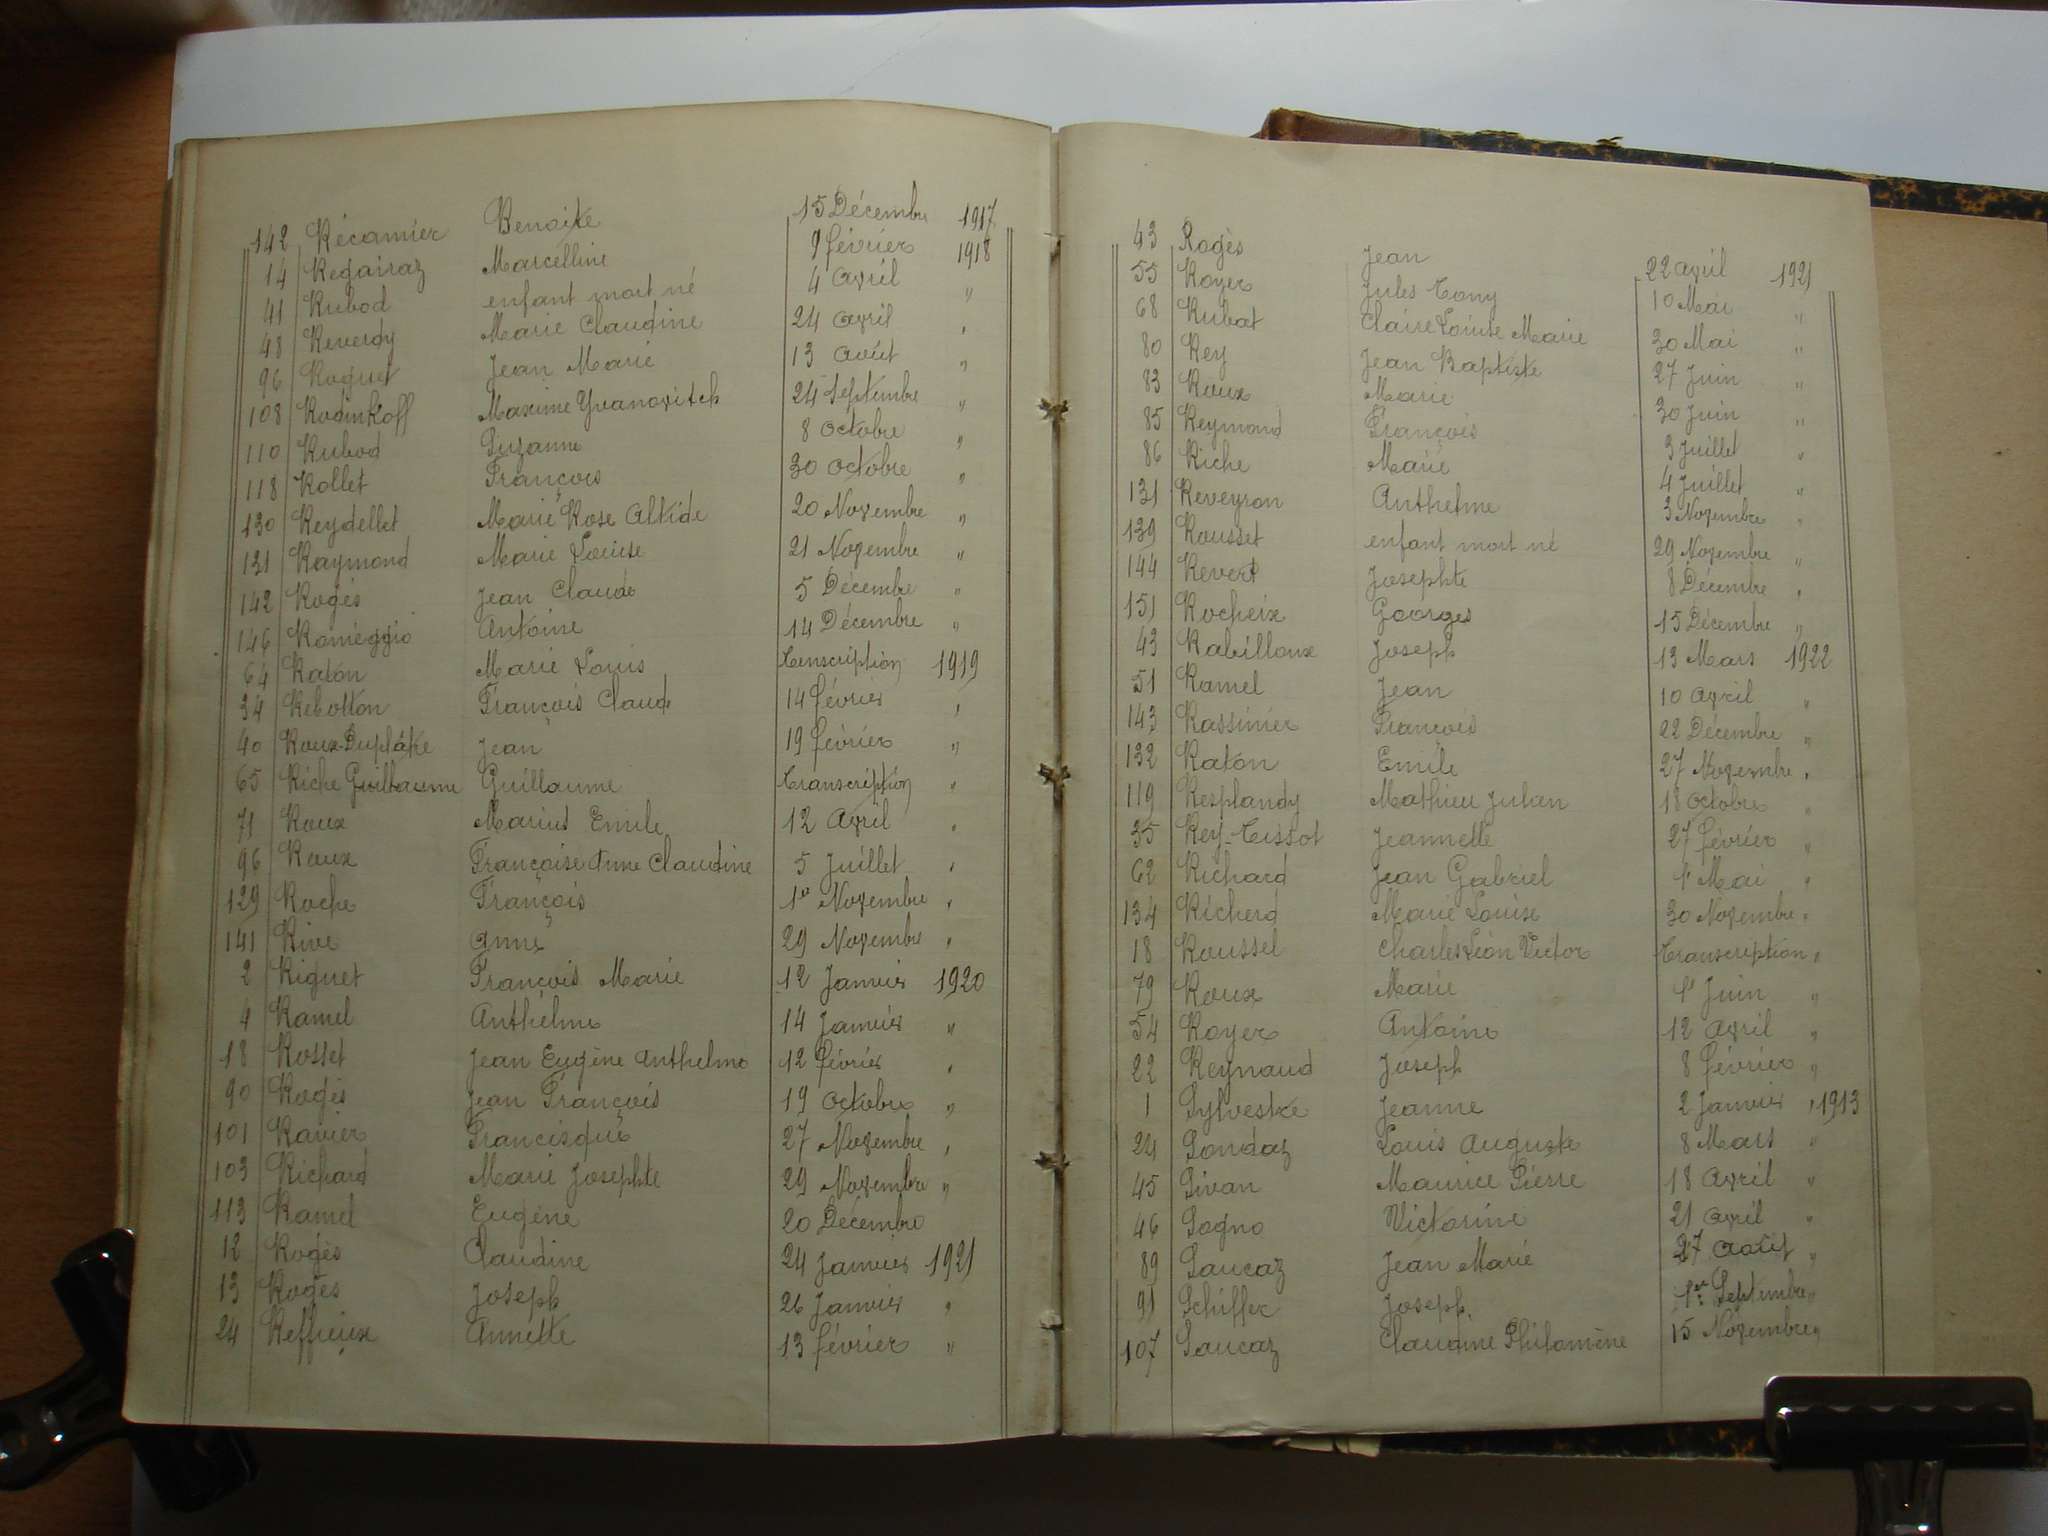 142 Récamier Benoite 15 Décembre 1917
14 Regairaz Marcelline 9 février 1918
41 Rubod enfant mort né 4 Avril "
48 Reverdy Marie Claudine 24 Avril "
96 Roguet Jean Marie 13 Août "
108 Maxime Yvanovitch 24 Septembre "
110 Rubod Suzanne 8 Octobre "
118 Rollet François 30 Octobre "
130 Reydellet Marie Rose 20 Novembre "
131 Raymond Marie Louise 21 Novembre "
142 Rogès Jean Claude 5 Décembre "
146 Antoine 14 Décembre "
64 Ratón Marie Louis 1919
34 Rebotton François Claude 14 février "
40 Jean 19 février "
65 Riche Guillaume Guillaume transcription "
71 Roux Marius Emile 12 Avril "
96 Roux Françoise Anne Claudine 5 Juillet "
129 Roche François 1er Novembre "
141 Rive Anne 29 Novembre "
2 Riguet François Marie 12 Janvier 1920
4 Ramel Anthelme 14 Janvier "
18 Rosset Jean Eugène Anthelme 12 février "
90 Rogès Jean François 19 Octobre "
101 Ravier Francisque 27 Novembre "
103 Richard Marie Josephte 29 Novembre "
113 Ramel Eugène 20 Décembre
12 Rogès Claudine 24 Janvier 1921
13 Rogès Joseph 26 Janvier "
24 Reffieux Annette 13 février "
43 Rogès Jean 22 Avril 1921
55 Royer Jules Tony 10 Mai "
68 Rubat Claire Louise Marie 30 Mai "
80 Rey Jean Baptiste 27 Juin "
83 Roux Marie 30 Juin "
85 Reymond François 3 Juillet "
86 Riche Marie 4 Juillet "
131 Reveyron Anthelme 3 Novembre "
139 Rousset enfant mort né 29 Novembre "
144 Revert Josephte 8 Décembre "
151 Rocheix Georges 15 Décembre "
43 Rabilloux Joseph 13 Mars 1922
51 Ramel Jean 10 Avril "
143 Rassinier François 22 Décembre "
132 Ratón Emile 27 Novembre "
119 Resplandy Mathieu Julian 18 Octobre "
35 Rey-Tissot Jeannette 27 février "
62 Richard Jean Gabriel 1r Mai "
134 Richerd Marie Louise 30 Novembre "
18 Roussel Charles Léon Victor transcription "
79 Roux Marie 1r Juin "
54 Royer Antoine 12 Avril "
22 Reynaud Joseph 8 février "
1 Sylvestre Jeanne 2 Janvier " 1913
24 Sondaz Louis Auguste 8 Mars "
45 Sivan Maurice Pierre 18 Avril "
46 Sogno Victorine 21 Avril "
89 Saucaz Jean Marie 27 Août "
91 Schiffer Joseph 1er Septembre "
107 Saucaz Claudine Philomène 15 Novembre "